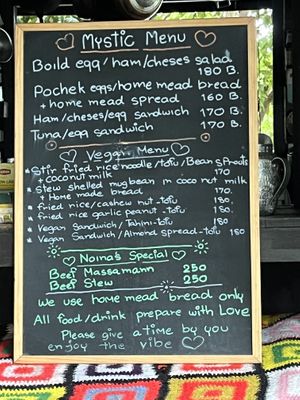 Mystic Menu
Boild egg/ham/cheses salad
180 B.
Pochek eggs/home mead bread
+ home mead spread 160 B.
Ham/cheses/egg sandwich 170 B.
Tuna/egg sandwich 170 B.
Vegan Menu
* Stir fried rice noodle/tofu/Bean sprouts
+ coconut milk 170
* Stew shelled mugbean in coconut milk
+ Home made bread 170.
* fried rice/cashew nut-tofu 180.
* fried rice garlic peanut-tofu 180.
* Vegan Sandwich/Tahini-tofu 180
* Vegan Sandwich/Almond spread-tofu 180
Noina's Special
Beef Massamann 250
Beef Stew 250
we use home mead bread only
All food/drink prepare with Love
Please give a time by you
enjoy the vibe